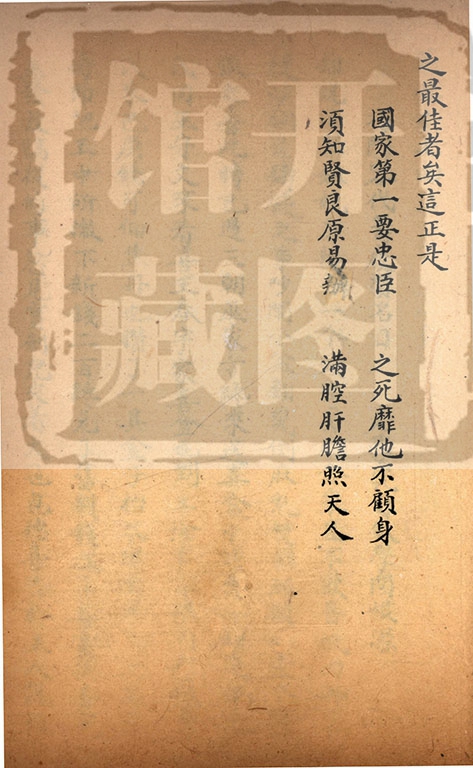 之最佳者矣這正是
國家第一要忠臣　之死靡他不顧身
須知賢良原易辦　滿腔肝膽照天人
开图
馆藏